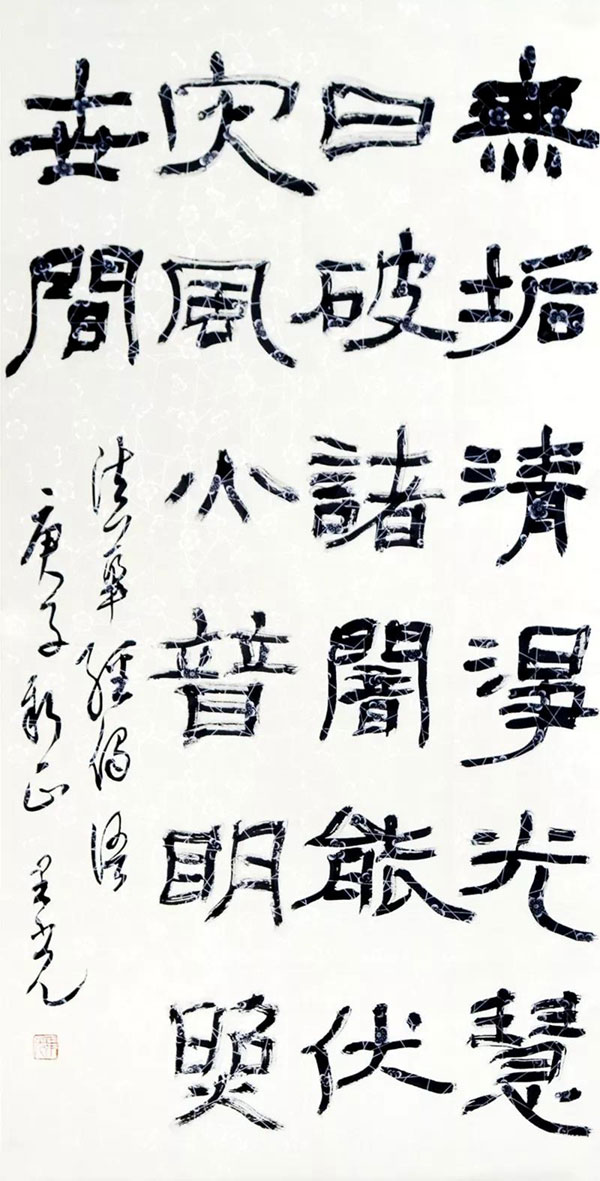 無垢清淨光慧
日破諸闇能伏
灾風火普明照
世間
法華經偈語
庚子新正